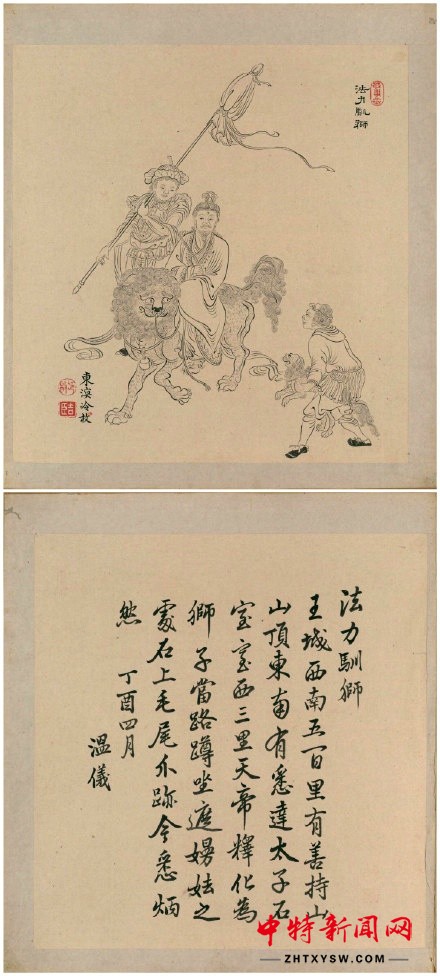 法力馴獅
東溟冷枚
法力馴獅
王城西南五百里有善持山
山頂東南有悉達太子石
室室西三里天帝釋化為
獅子當路蹲坐遮嫚妶之
處石上毛尾爪跡今悉炳
然　丁酉四月
溫儀
中特新闻网
ZHTXYSW.COM